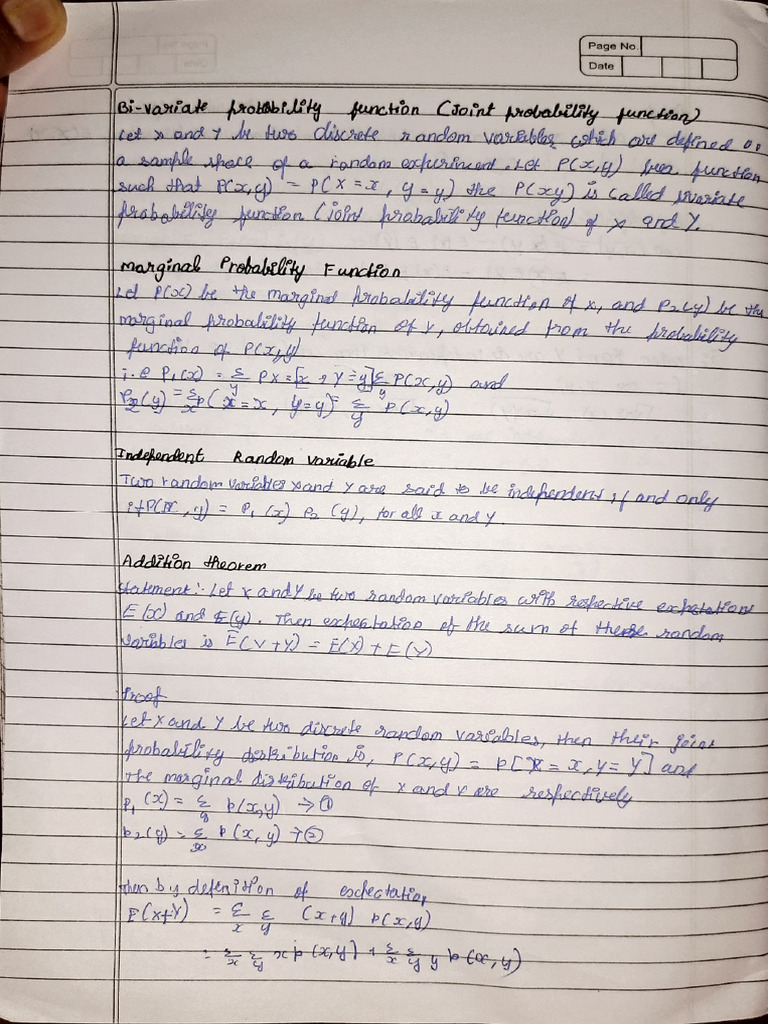 Page No.
Date
Bi-variate probability function (Joint probability function)
Let X and Y be two discrete random variables, which are defined on
a sample space of a random experiment. Let P(x,y) be a function
such that P(x,y) = P(X=x, y=y) the P(xy) is called bivariate
probability function (joint probability function) of X and Y.
Marginal Probability Function
Let P(x) be the marginal probability function of x, and P2(y) be the
marginal probability function of Y, obtained from the probability
function of P(x,y)
i.e P₁(x) = Σy PX=[x, Y=y] Σy P(x,y) and
P2(y) = Σx P(x=x, y=y) = Σy P(x,y)
Independent Random variable
Two random variables X and Y are said to be independent if and only
if P(x,y) = P₁(x) P2(y), for all x and Y.
Addition theorem
Statement:- Let X and Y be two random variables with respective expectations
E(x) and E(y). Then expectation of the sum of these random
variables is E(V+Y) = E(X)+E(Y)
Proof
Let X and Y be two discrete random variables, then their joint
probability distribution is, P(x,y) = P[X=x, Y=Y] and
the marginal distribution of X and Y are respectively
P₁(x) = Σy p(x,y) → ①
p2(y) = Σx p(x,y) → ②
Then by definition of expectation
E(X+Y) = Σx Σy (x+y) p(x,y)
= Σx Σy x p(x,y) + Σx Σy y p(x,y)